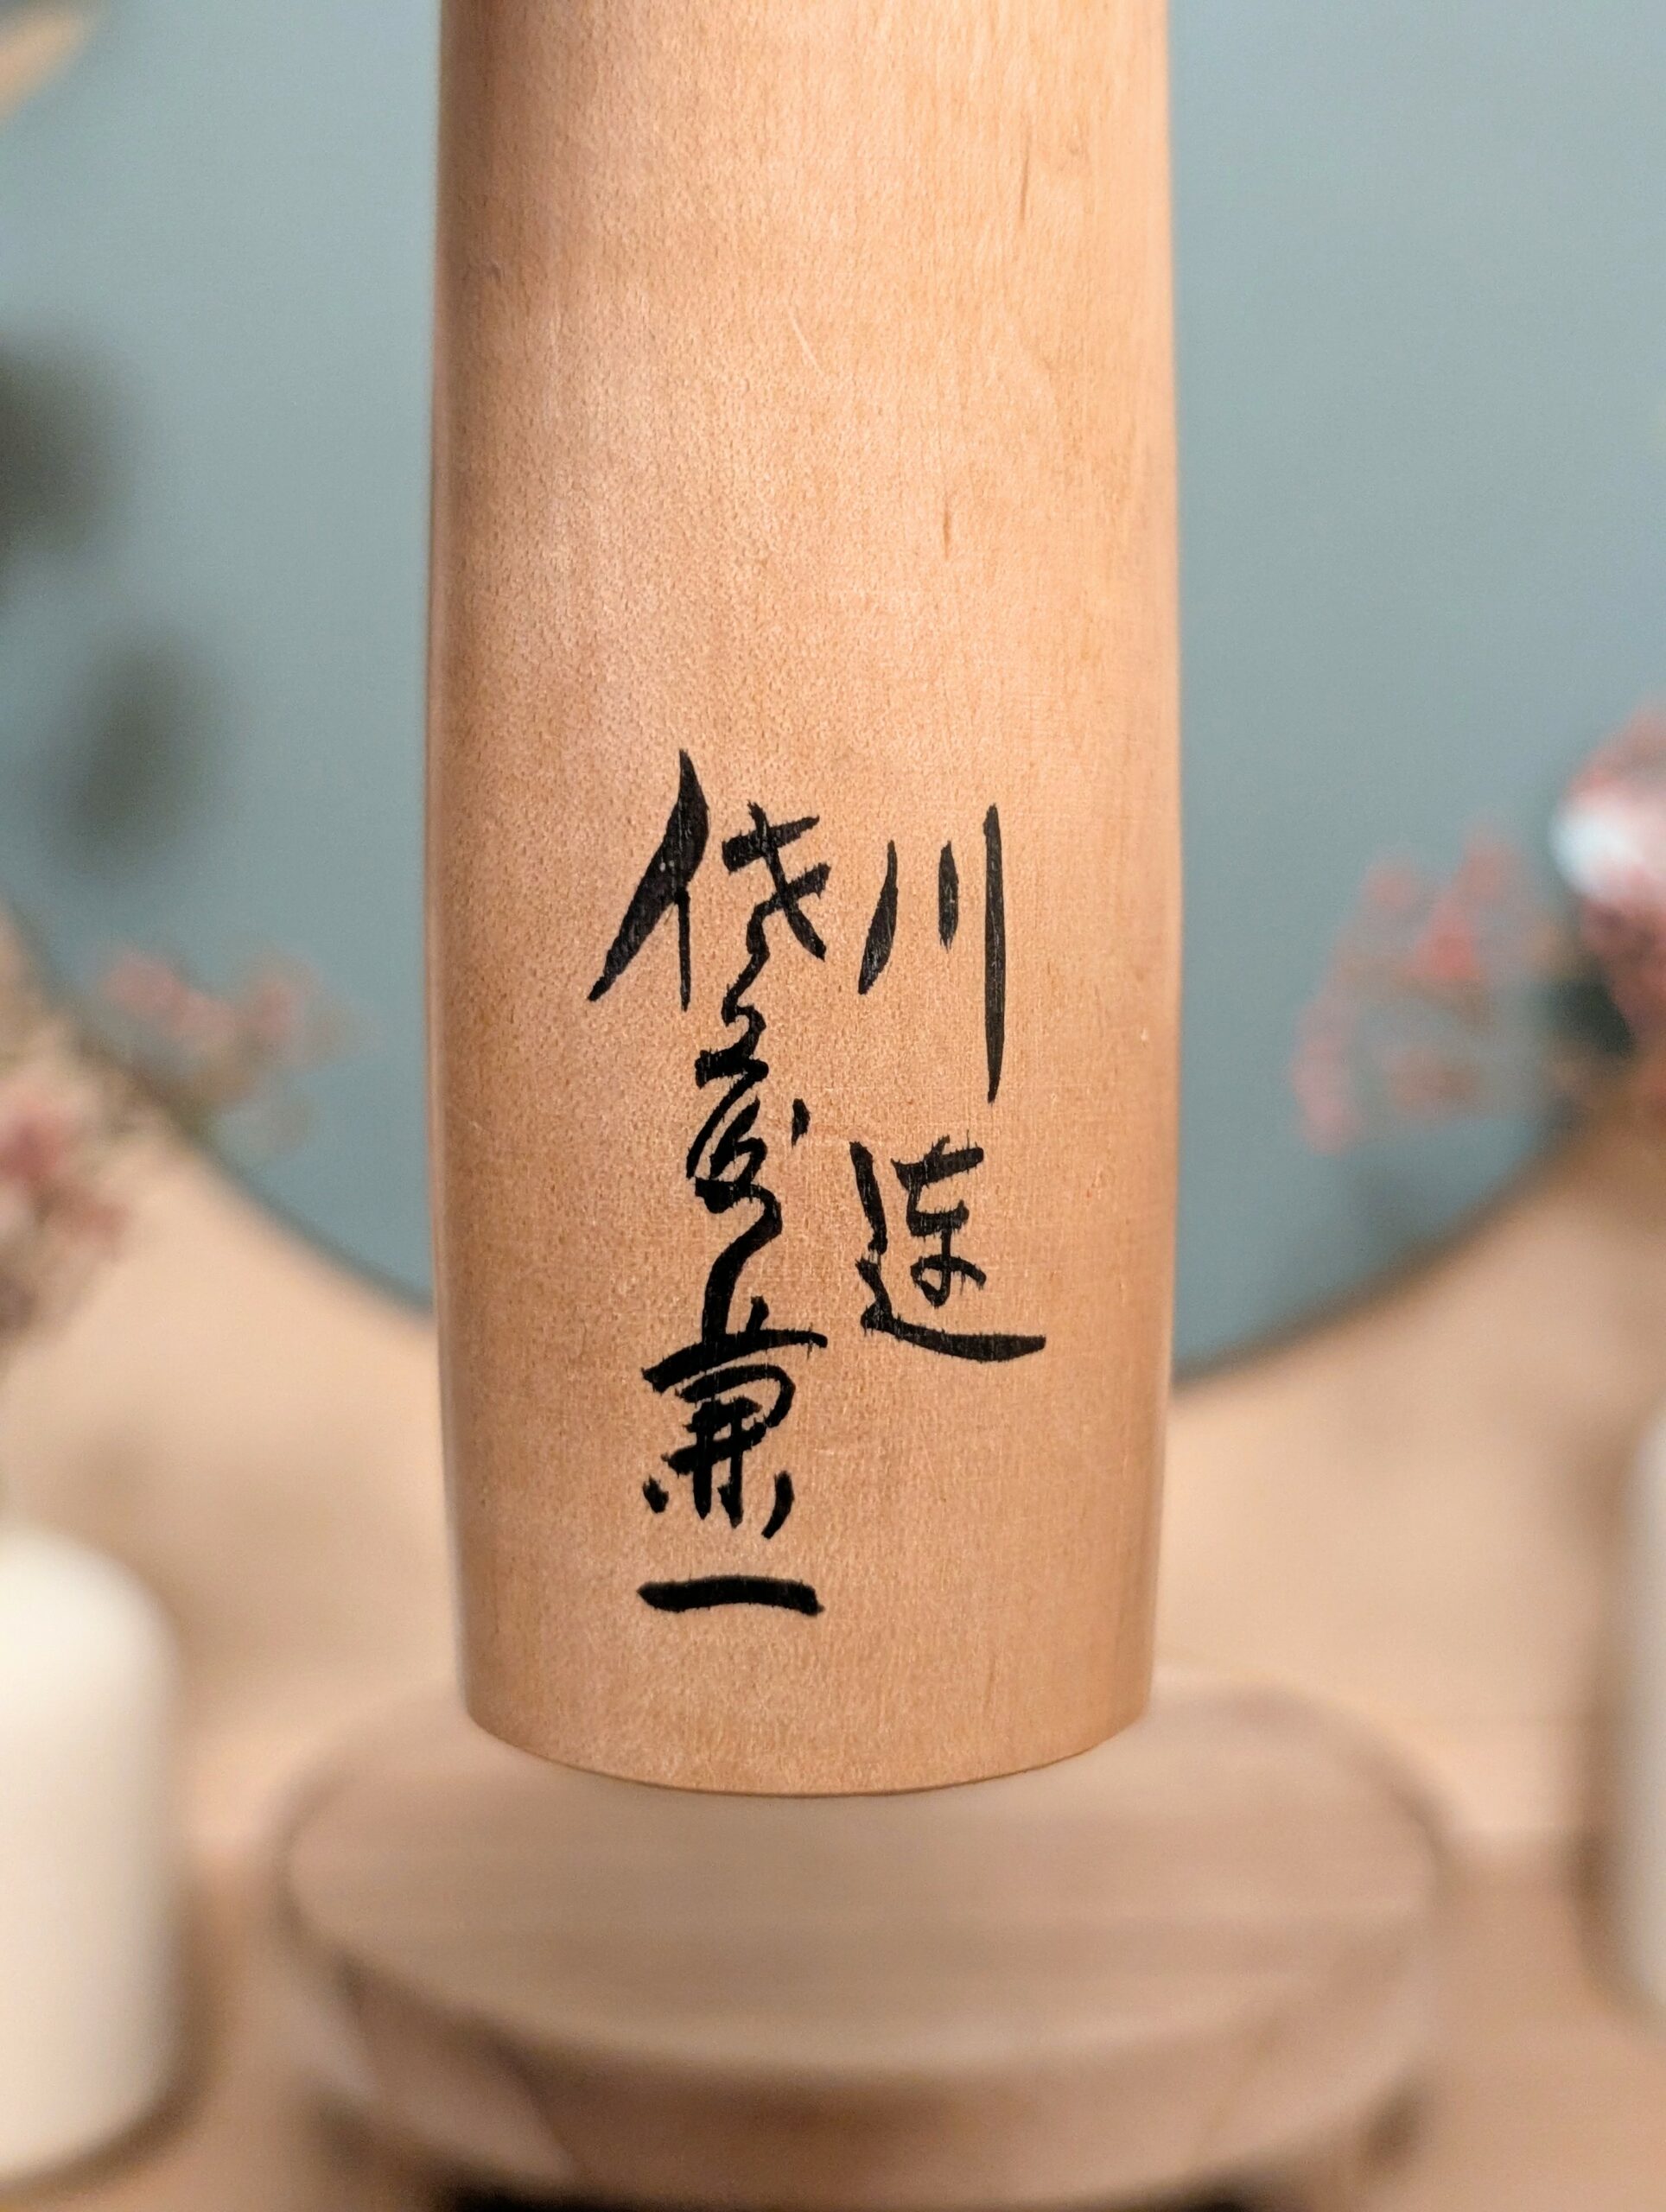 川連
佐藤兼一